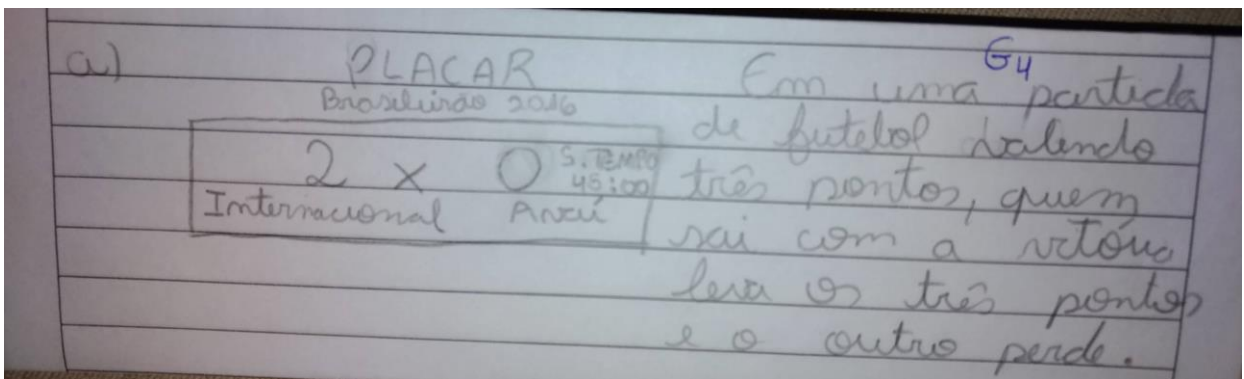 a) PLACAR
Brasileirão 2016
2 x 0 S. TEMPO
45:00
Internacional Avaí
G4
Em uma partida
de futebol valendo
três pontos, quem
sai com a vitória
leva os três pontos
e o outro perde.